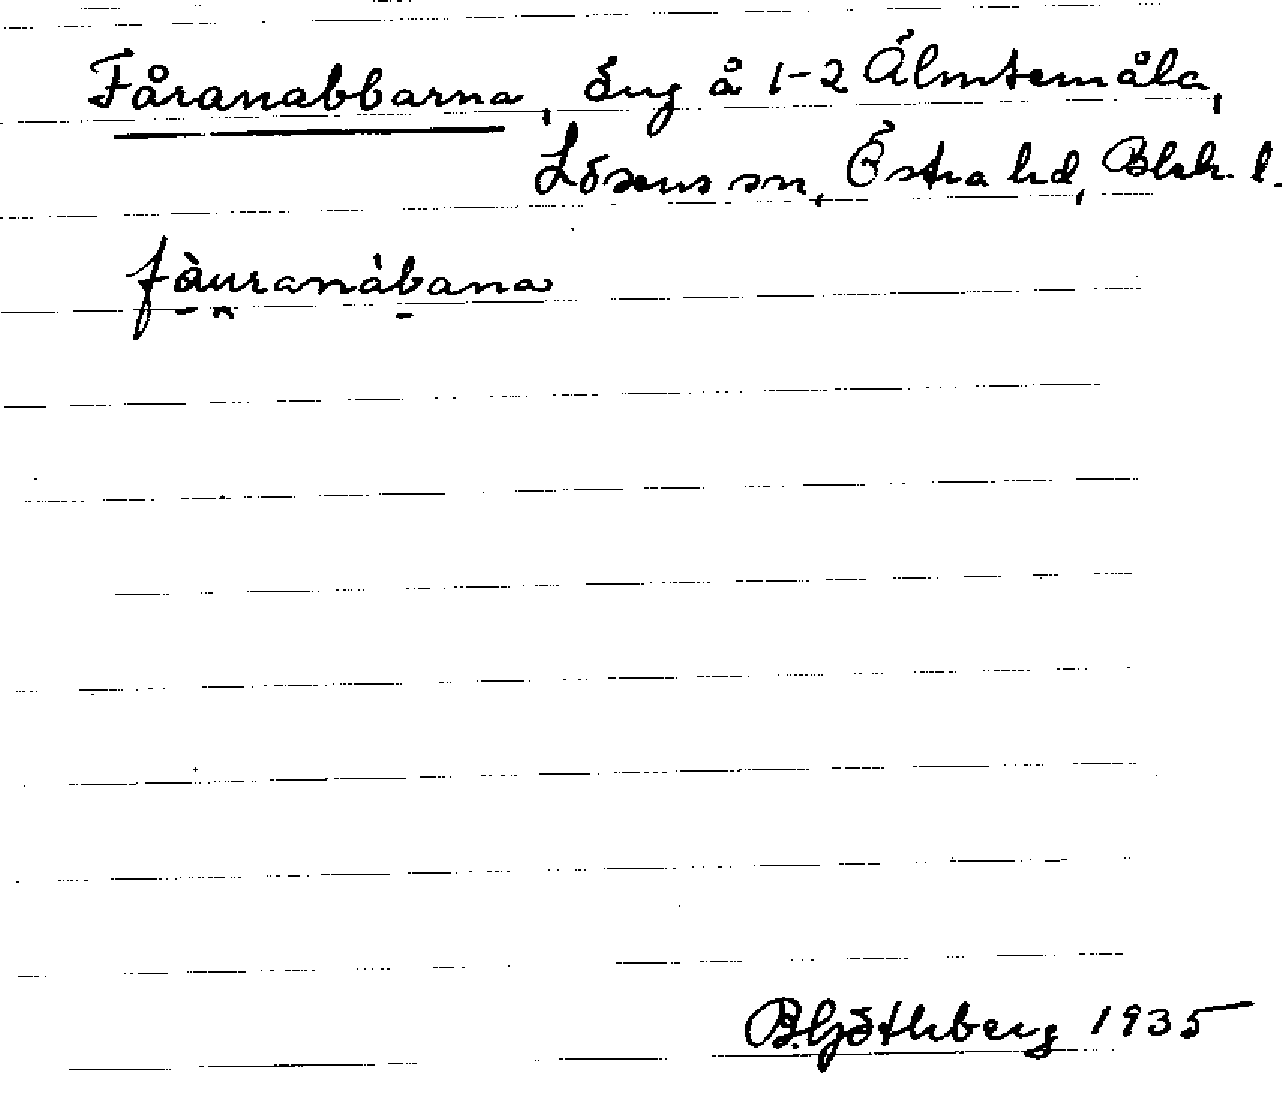 Fåranabbarna, äng å 1-2 Älmtemåla,
Lösens sn, Östra hd, Blek. l.
fàuranábana
B. Göthberg 1935